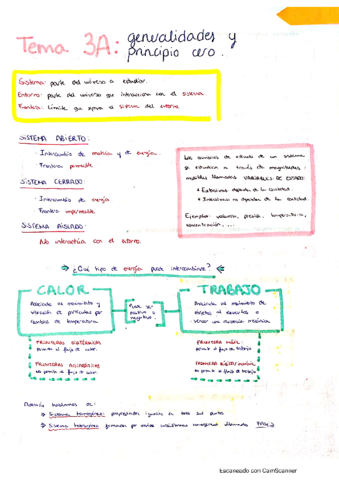 Tema 3A: generalidades y
principio cero.
Sistema: parte del universo a estudiar.
Entorno: parte del universo que interacciona con el sistema
Frontera: Límite que separa el sistema del entorno.
SISTEMA ABIERTO:
· Intercambio de materia y de energía.
· Frontera permeable
SISTEMA CERRADO:
· Intercambio de energía
· Frontera impermeable
SISTEMA AISLADO:
No interactúa con el entorno.
Los cambios de estado de un sistema
se estudian a través de magnitudes
medibles llamadas VARIABLES DE ESTADO:
Extensivas: depende de la cantidad.
Intensivas: no dependen de la cantidad
Ejemplos: volumen, presión, temperatura,
concentración, ...
¿Qué tipo de energía puede intercambiar?
CALOR
Asociada al movimiento y
vibración de partículas por
cambio de temperatura.
Puede ser
positivo o
negativo.
TRABAJO
Asociada al movimiento de
objetos al
vencer una
FRONTERAS DIATÉRMICAS
permite el flujo de calor.
FRONTERAS ADIABÁTICAS
no permite el flujo de calor
FRONTERA MÓVIL:
permite el flujo de trabajo
FRONTERA RÍGIDA
no permite el flujo de trabajo
Además hablamos de:
Sistema homogéneo: propiedades iguales en todo sus puntos
Sistema heterogéneo: formado por varios subsistemas homogéneos llamados FASES
Escaneado con CamScanner